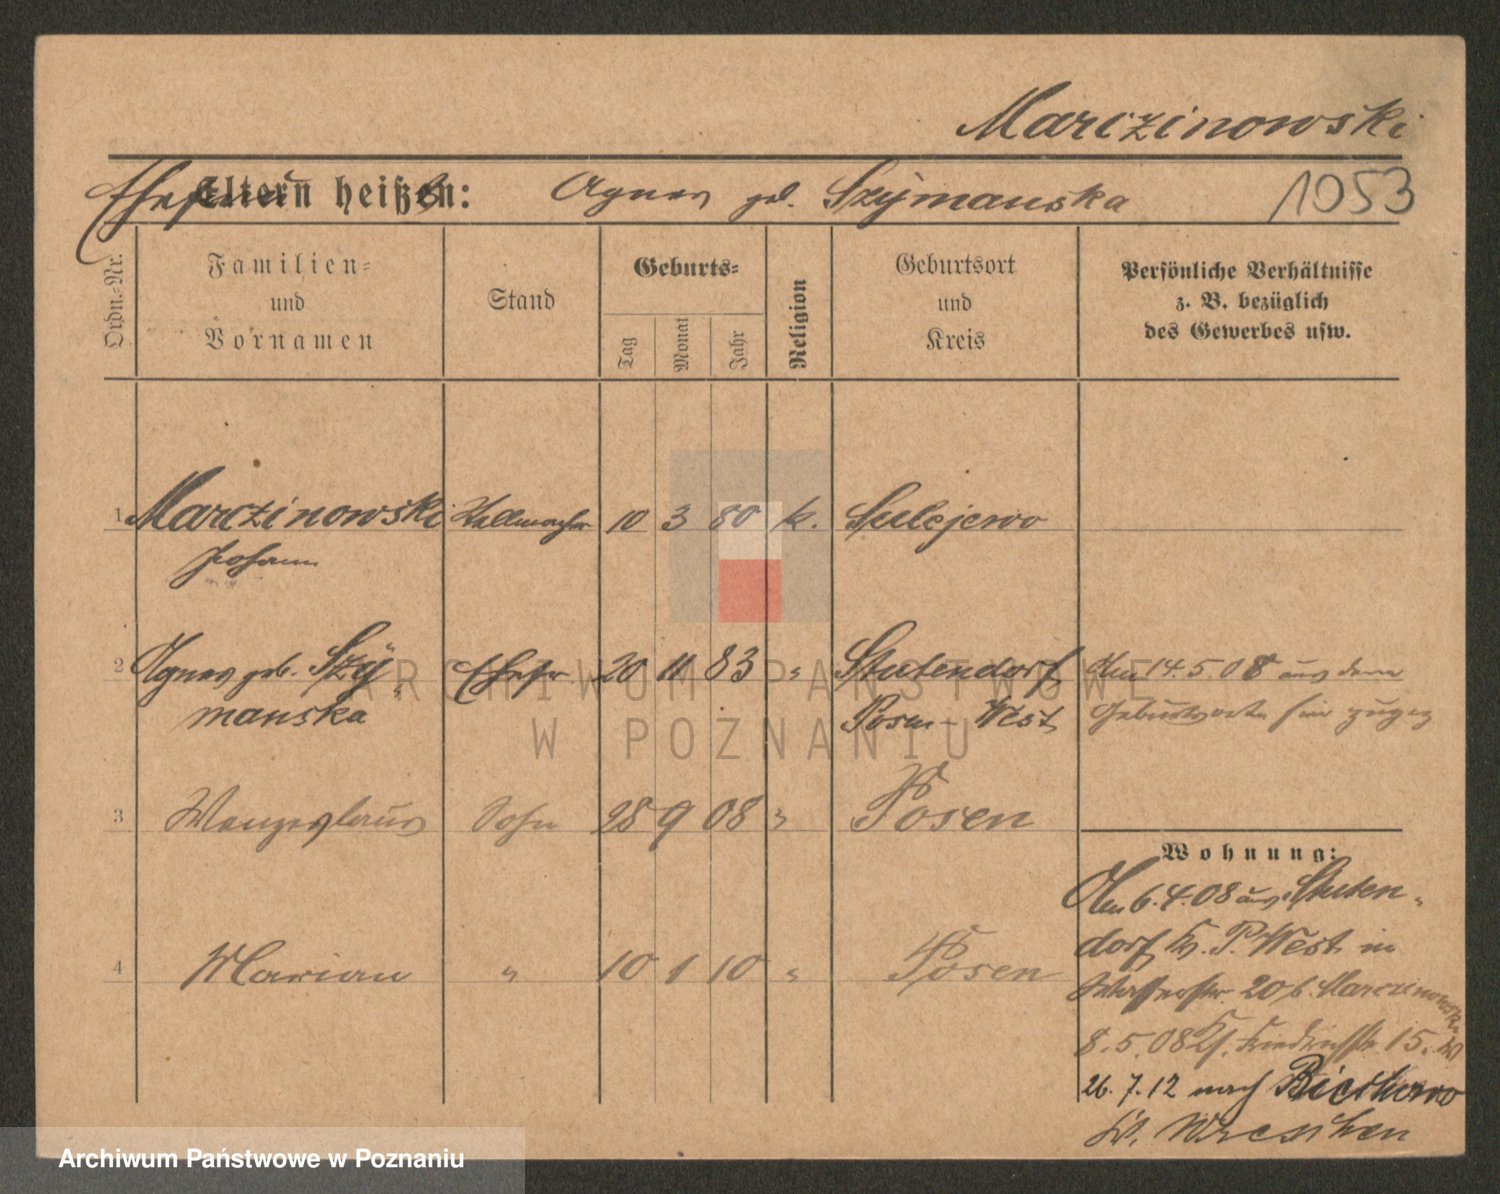 Marczinowski
Eltern heißen: Agnes geb. Szymanska 1053
Ordn.-Nr.
Familien-
und
Vornamen
Stand
Geburts-
Tag
Monat
Jahr
Religion
Geburtsort
und
Kreis
Persönliche Verhältnisse
z. B. bezüglich
des Gewerbes usw.
1 Marczinowski 10 3 80 k. Sulejewo
Johann
2 Agnes geb. Szy- Ehefr. 20 11 83 " Stutendorf Am 14.5.08 aus dem
manska Posen-West Geburtsorte hier zugez
3 Wenzeslaus Sohn 28 9 08 " Posen
4 Marian " 10 1 10 " Posen
Wohnung:
Am 6.4.08 aus Stuten-
dorf Kr. P. West in
20 b. Marczinowski
8.5.08 Friedrichstr. 15.
26.7.12 nach Biechowo
Kr. Wreschen
ARCHIWUM PAŃSTWOWE
W POZNANIU
Archiwum Państwowe w Poznaniu